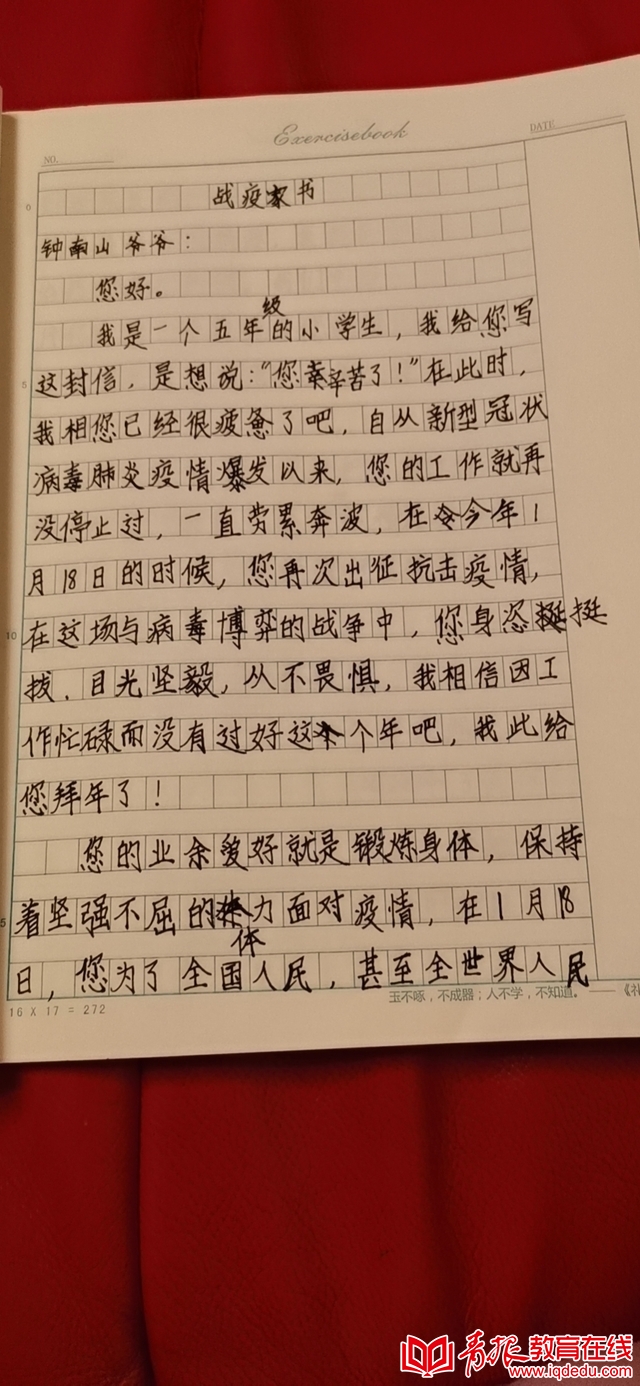 Exercisebook
NO.
DATE
0
战疫家书
钟南山爷爷：
您好。
我是一个五年级的小学生，我给您写
5
这封信，是想说：“您辛苦了！”在此时，
我相您已经很疲惫了吧，自从新型冠状
病毒肺炎疫情爆发以来，您的工作就再
没停止过，一直劳累奔波，在今年1
月18日的时候，您再次出征抗击疫情，
10
在这场与病毒博弈的战争中，您身姿挺
拔、目光坚毅，从不畏惧，我相信因工
作忙碌而没有过好这个年吧，我此给
您拜年了！
您的业余爱好就是锻炼身体，保持
着坚强不屈的体力面对疫情，在1月18
日，您为了全国人民，甚至全世界人民
16 X 17 = 272
玉不啄，不成器；人不学，不知道。 ——《礼
青报教育在线
www.iqdedu.com